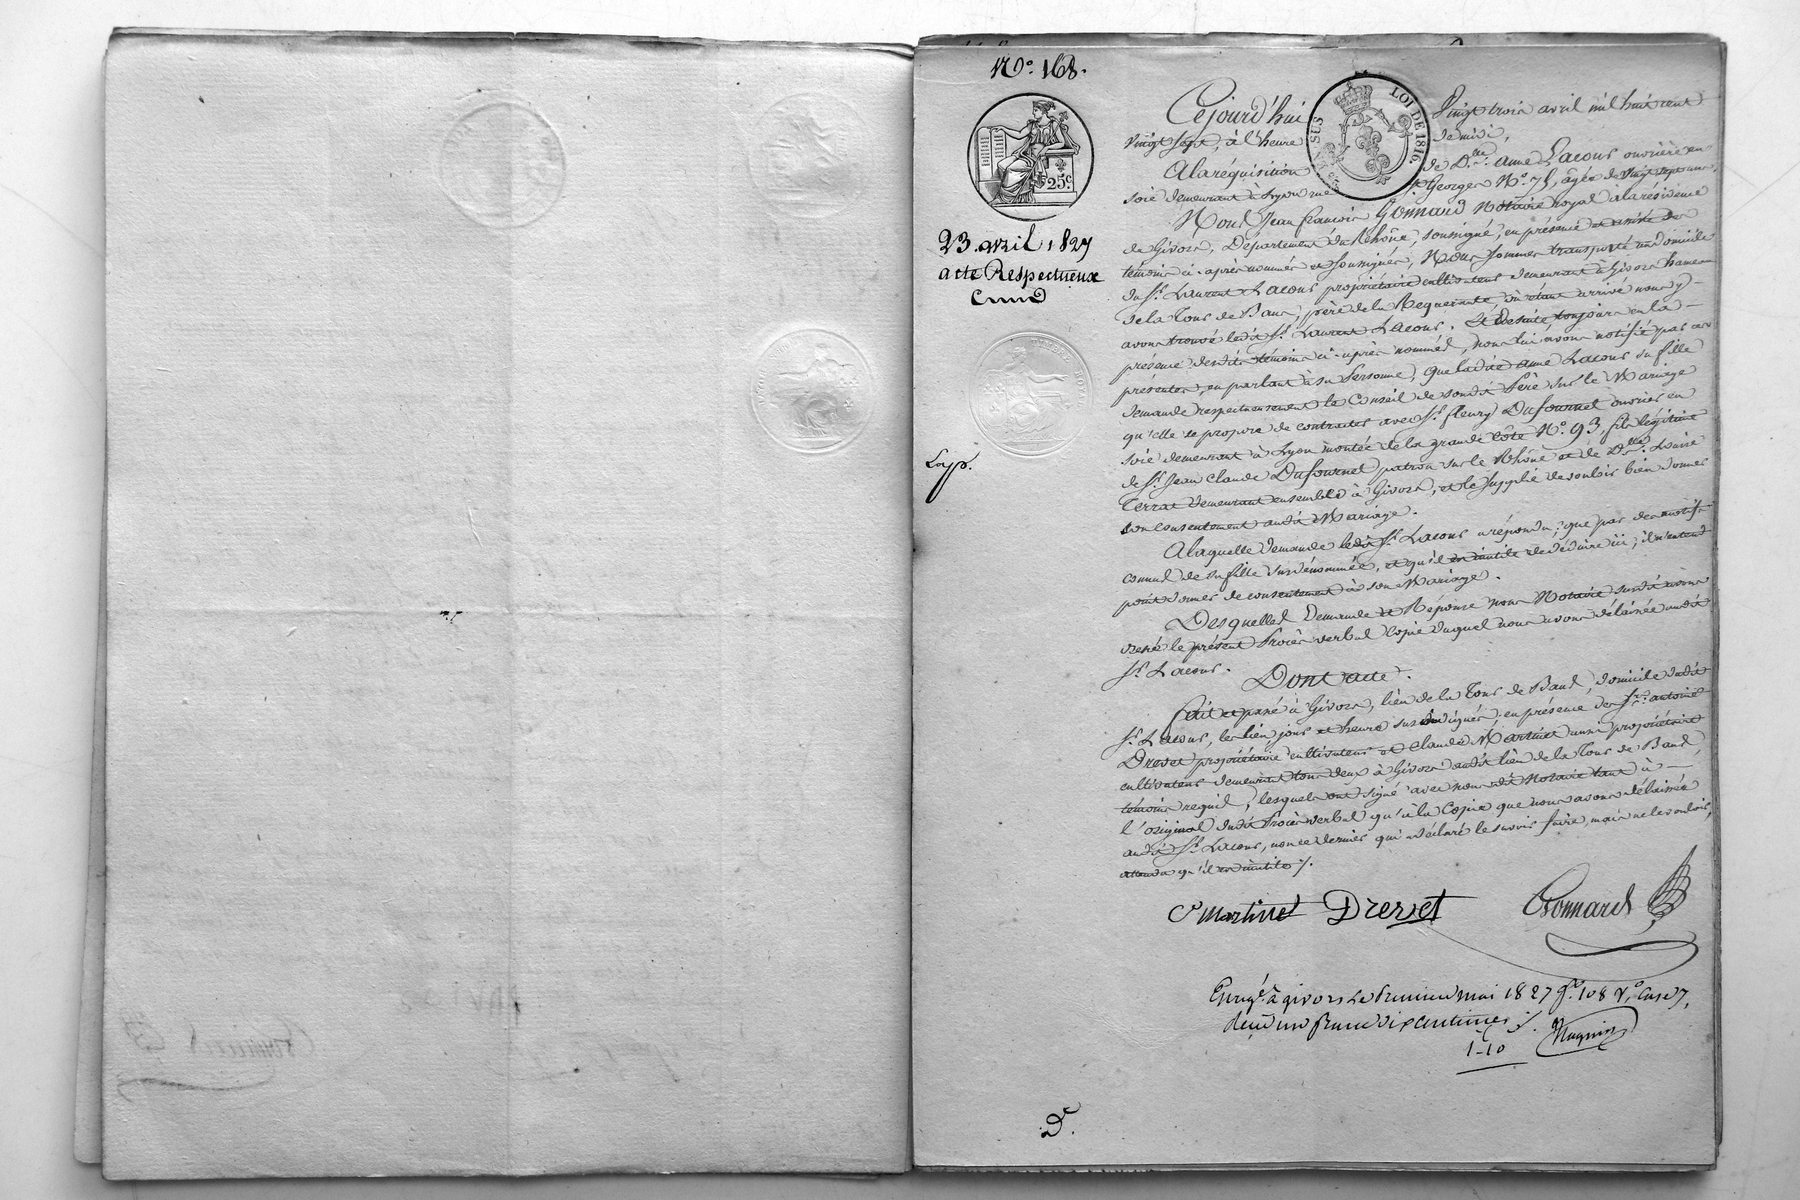 N.º 168.
LOI DE 1816.
SUS
25.c
23. avril 1827
acte Respectueux
Exp.
TIMBRE ROYAL
Cejourd'hui vingt trois avril mil huit cent
vingt sept, à l'heure de midi,
A la réquisition de D.lle anne Lacour ouvrière en
soie demeurant à Lyon rue S.t Georges N.º 75, âgée de vingt sept ans,
Nous Jean françois Gonnard Notaire royal à la résidence
de Givors, Département du Rhône, soussigné, en présence et assisté des
témoins ci-après nommés et soussignés, Nous sommes transporté au domicile
du S.r Laurent Lacour propriétaire cultivateur demeurant à Givors hameau
de la Tour de Baux, père de la Requérante, où étant arrivé nous y
avons trouvé ledit S.r Laurent Lacour. Et de suite toujours en la
présence desdits témoins ci-après nommés, nous lui avons notifié par ces
présentes, en parlant à sa Personne, que ladite anne Lacour sa fille
demande respectueusement le Conseil de sondit Père sur le Mariage
qu'elle se propose de contracter avec S.r fleury Dufournel ouvrier en
soie demeurant à Lyon montée de la grande côte N.º 93, fils légitime
de S.r Jean Claude Dufournel patron sur le Rhône et de D.lle Louise
Terrat demeurant ensemble à Givors, et le supplie de vouloir bien donner
son consentement audit Mariage.
A laquelle demande ledit S.r Lacour a répondu; que par des motifs
connus de sa fille susdénommée, et qu'il est inutile de déduire ici, il n'entend
point donner de consentement à son Mariage.
Desquelles Demande et Réponse nous Notaire susdit avons
dressé le présent Procès verbal Copie duquel nous avons délaissée audit
S.r Lacour. Dont acte.
fait et passé à Givors, lieu de la Tour de Baux, domicile dudit
S.r Lacour, les lieu jour et heure sus indiqués, en présence de S.rs antoine
Drevet propriétaire cultivateur et Claude Martinet aussi propriétaire
cultivateur demeurant tous deux à Givors audit lieu de la Tour de Baux,
témoins requis, lesquels ont signé avec nous dit Notaire tant à
l'original dudit Procès verbal qu'à la Copie que nous avons délaissée
audit S.r Lacour, non ce dernier qui a déclaré le savoir faire, mais ne le vouloir,
attendu qu'il est inutile ./.
C.e Martinet Drevet Gonnard
Enreg.é à givors Le Premier mai 1827 f.º 108 V.º Case 7,
reçu un franc dix centimes ./.
1-10
D.c